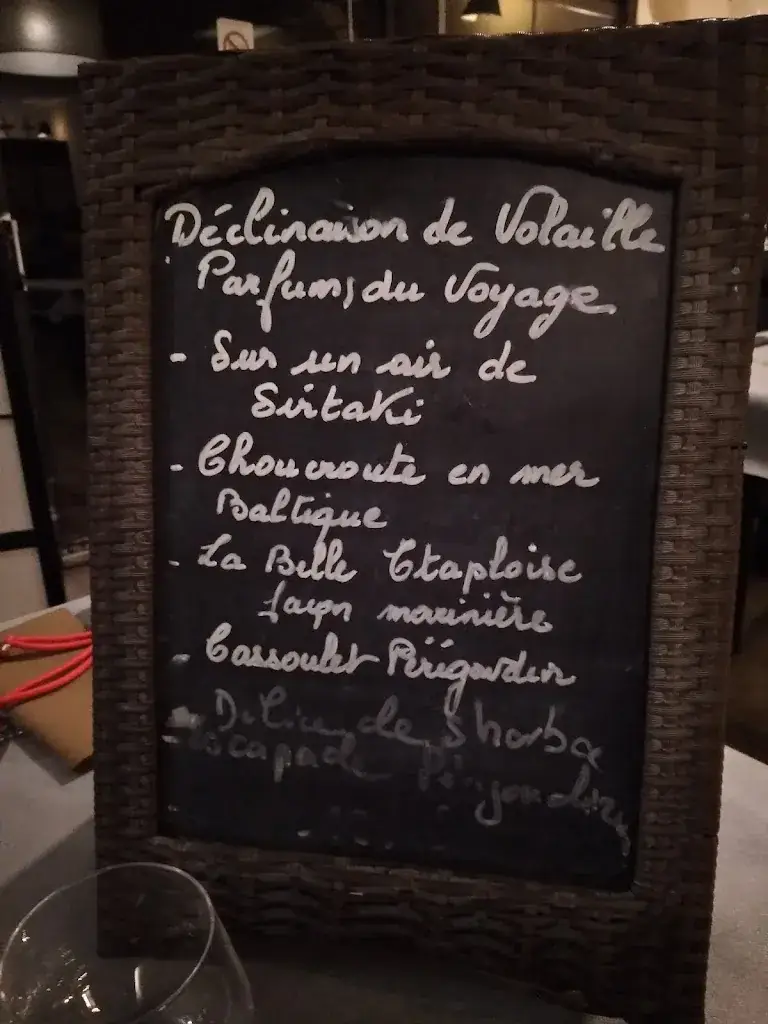 Déclinaison de Volaille
Parfums du Voyage
- Sur un air de
Sirtaki
- Choucroute en mer
Baltique
- La Belle Etaploise
façon marinière
- Cassoulet Périgourdin
- Délice de Shorba
- escapade Périgourdine